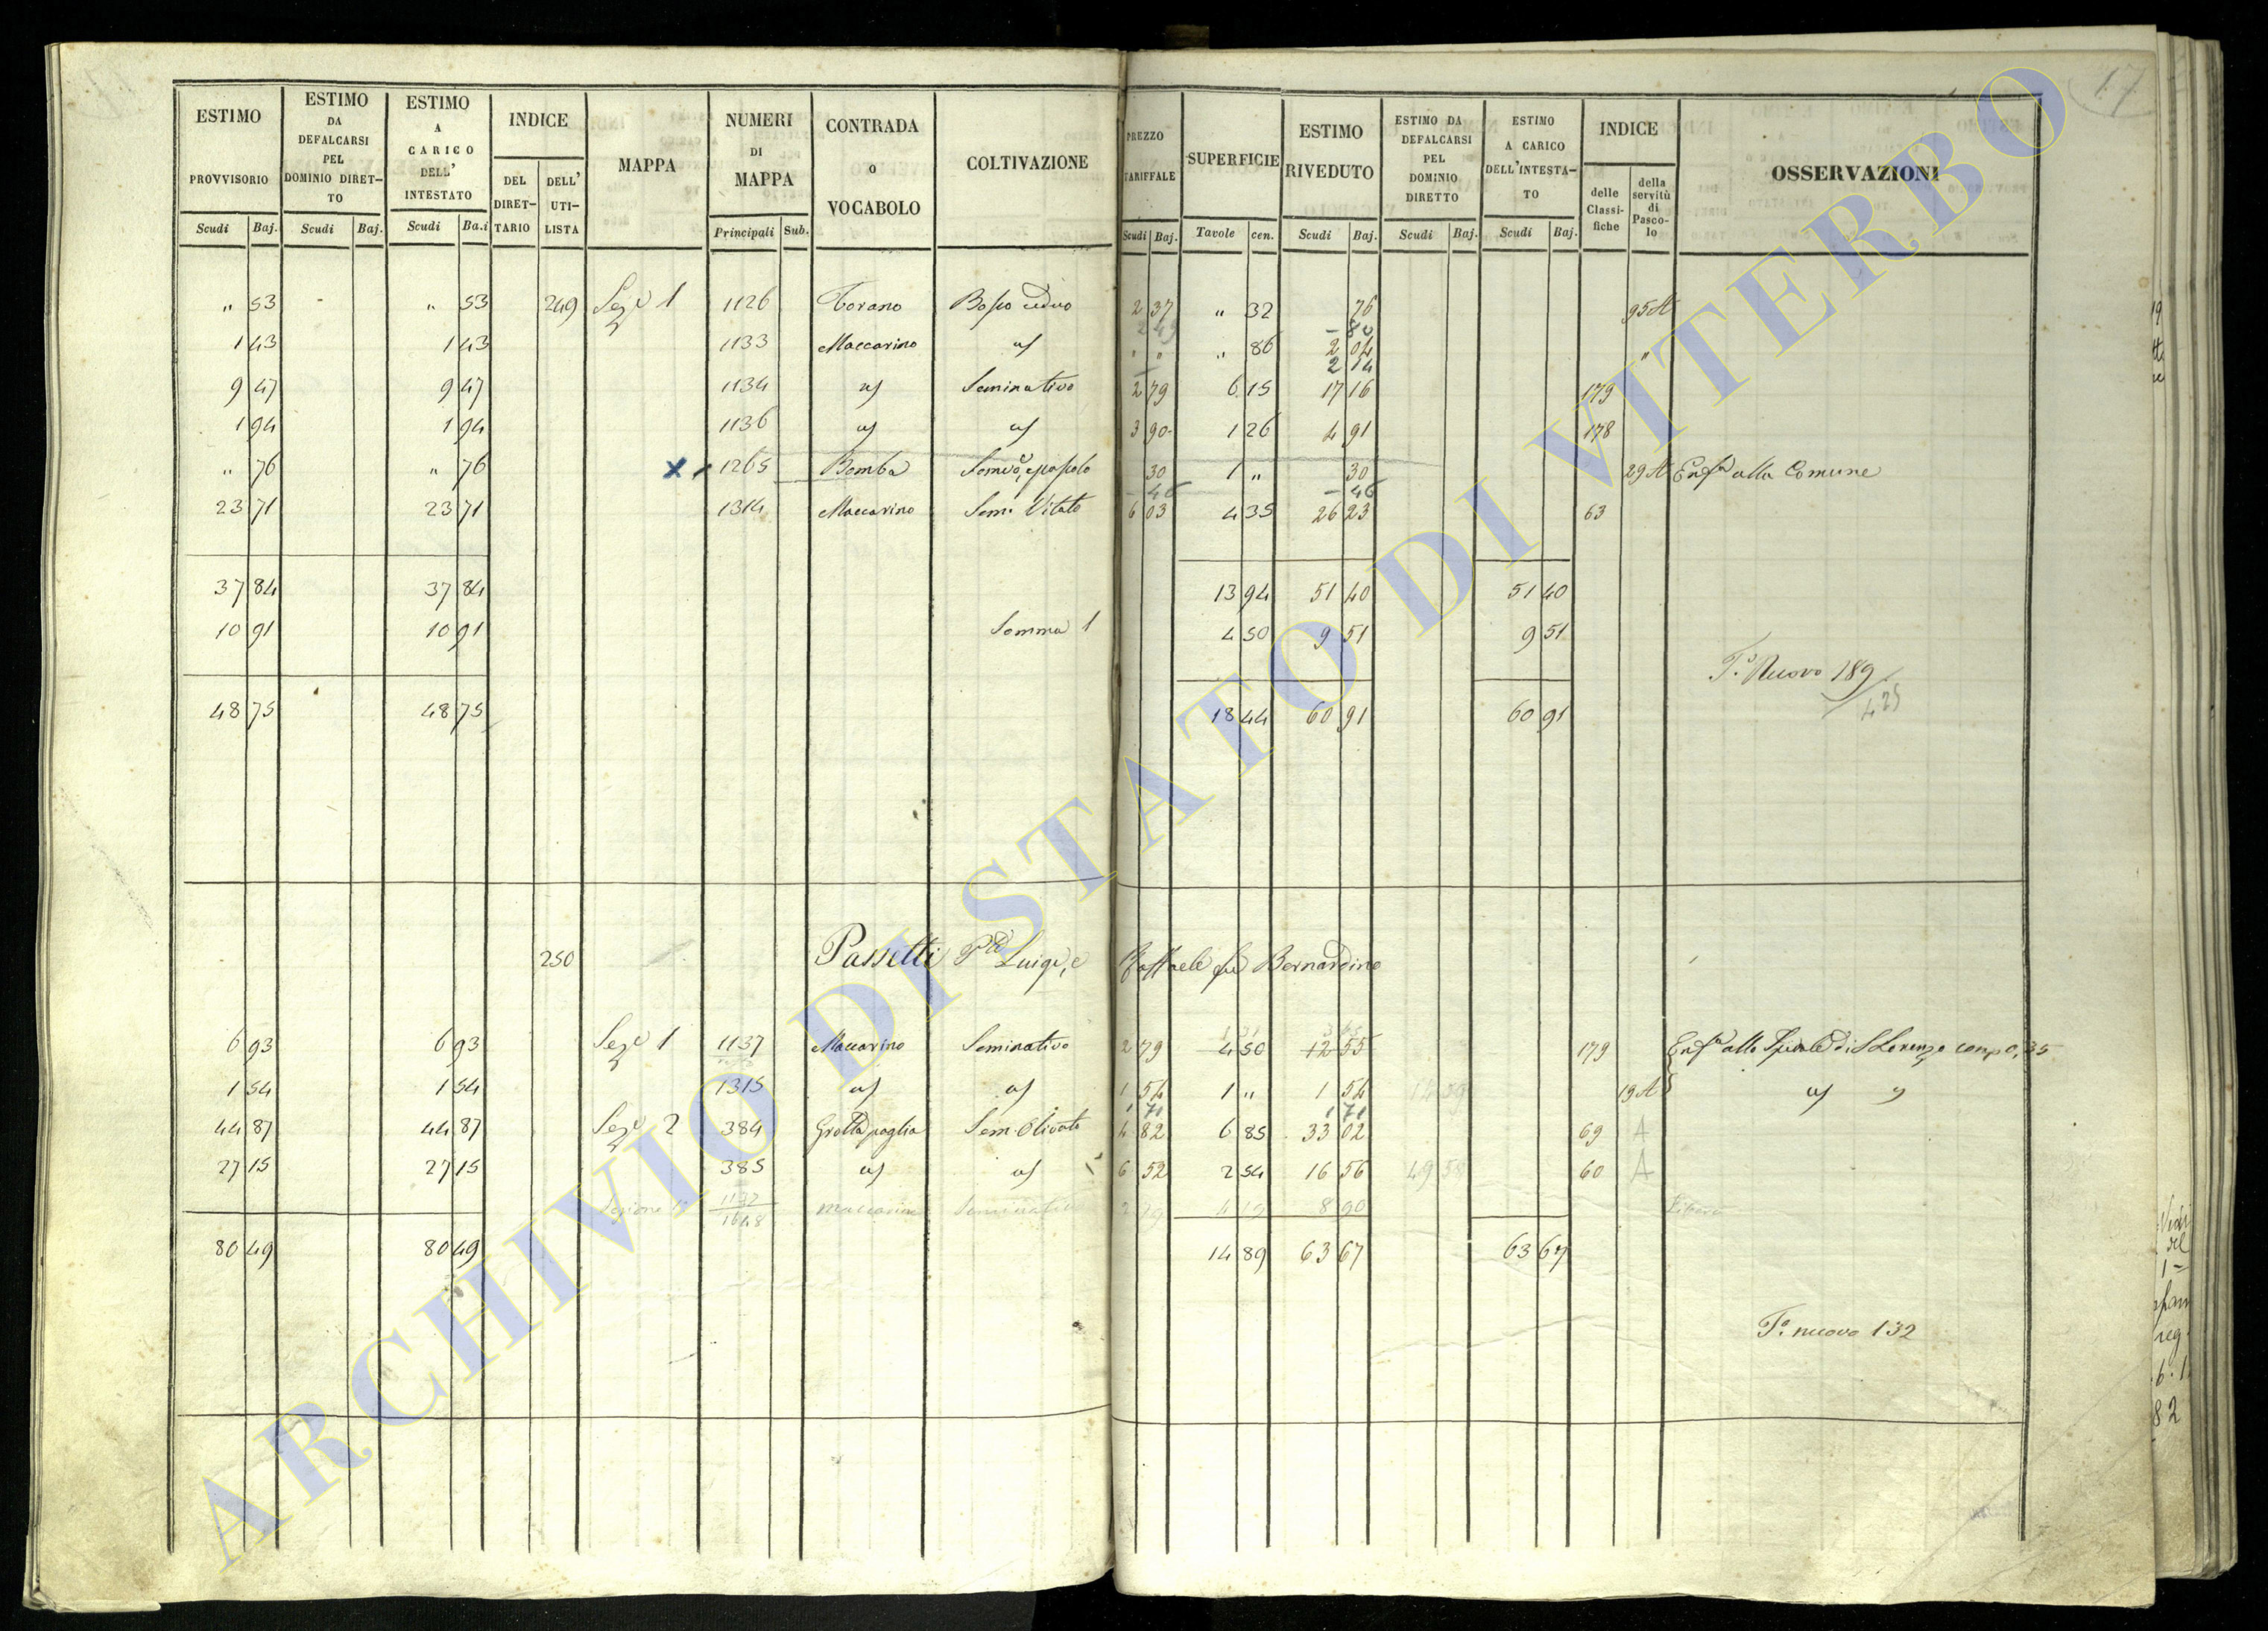 17
ESTIMO PROVVISORIO Scudi Baj.
ESTIMO DA DEFALCARSI PEL DOMINIO DIRETTO Scudi Baj.
ESTIMO A CARICO DELL' INTESTATO Scudi Ba.i
INDICE DEL DIRETTARIO DELL' UTILISTA
MAPPA
NUMERI DI MAPPA Principali Sub.
CONTRADA o VOCABOLO
COLTIVAZIONE
PREZZO TARIFFALE Scudi Baj.
SUPERFICIE Tavole cen.
ESTIMO RIVEDUTO Scudi Baj.
ESTIMO DA DEFALCARSI PEL DOMINIO DIRETTO Scudi Baj.
ESTIMO A CARICO DELL'INTESTATO Scudi Baj.
INDICE delle Classifiche della servitù di Pascolo
OSSERVAZIONI
" 53 - " 53 249 Seze 1 1126 Torano Bosco ceduo 2 37 " 32 76 95 A
2 49 - 80
1 43 1 43 1133 Maccarino id " " " 86 2 04 "
2 14
9 47 9 47 1134 id Seminativo 2 79 6 15 17 16 179
1 94 1 94 1136 id id 3 90 1 26 4 91 178
" 76 " 76 x 1265 Bomba 30 1 " 30 29 A Enfa alla Comune
- 46 - 46
23 71 23 71 1314 Maccarino Sem. Vitato 6 03 4 35 26 23 63
37 84 37 84 13 94 51 40 51 40
10 91 10 91 Somma 1 4 50 9 51 9 51
To. Nuovo 189
425
48 75 48 75 18 44 60 91 60 91
250 Passetti Luigi, e Raffaele fu Bernardino
6 93 6 93 Seze 1 1137 Maccarino Seminativo 2 79 4 50 12 55 179 Enfa allo Spedale di S Lorenzo
1 54 1 54 1315 id id 1 54 1 " 1 54 19 A id
1 71 1 71
44 87 44 87 Seze 2 384 Grotta paglia Sem. Olivato 4 82 6 85 33 02 69 A
27 15 27 15 385 id id 6 52 2 54 16 56 49 58 60 A
Sezione 1a 1137/1648 Maccarino Seminativo 2 79 8 90 Libero
80 49 80 49 14 89 63 67 63 67
To. nuovo 132
ARCHIVIO DI STATO DI VITERBO